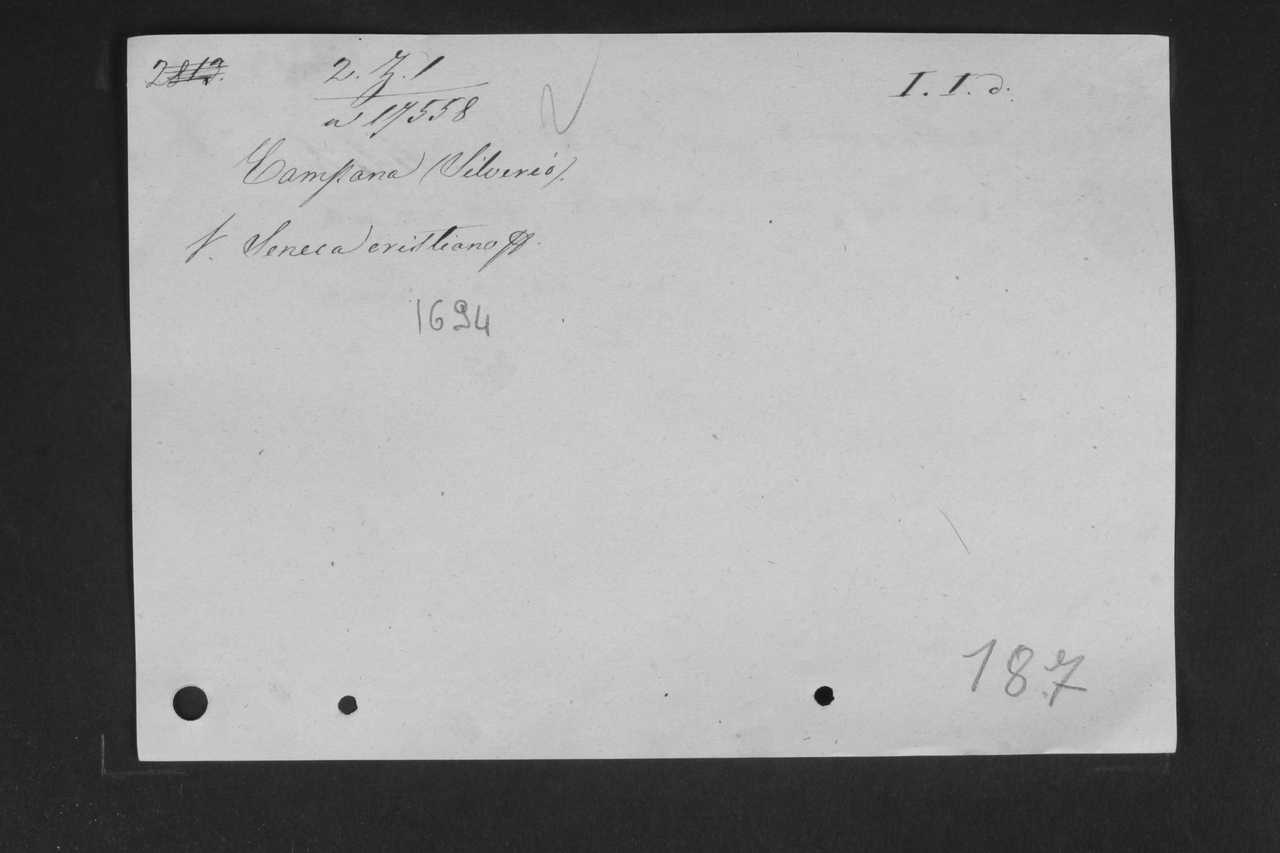 2813. 2. Z. 1 I. I. d.
a 17558
Campana (Silverio).
V. Seneca cristiano
1694
187